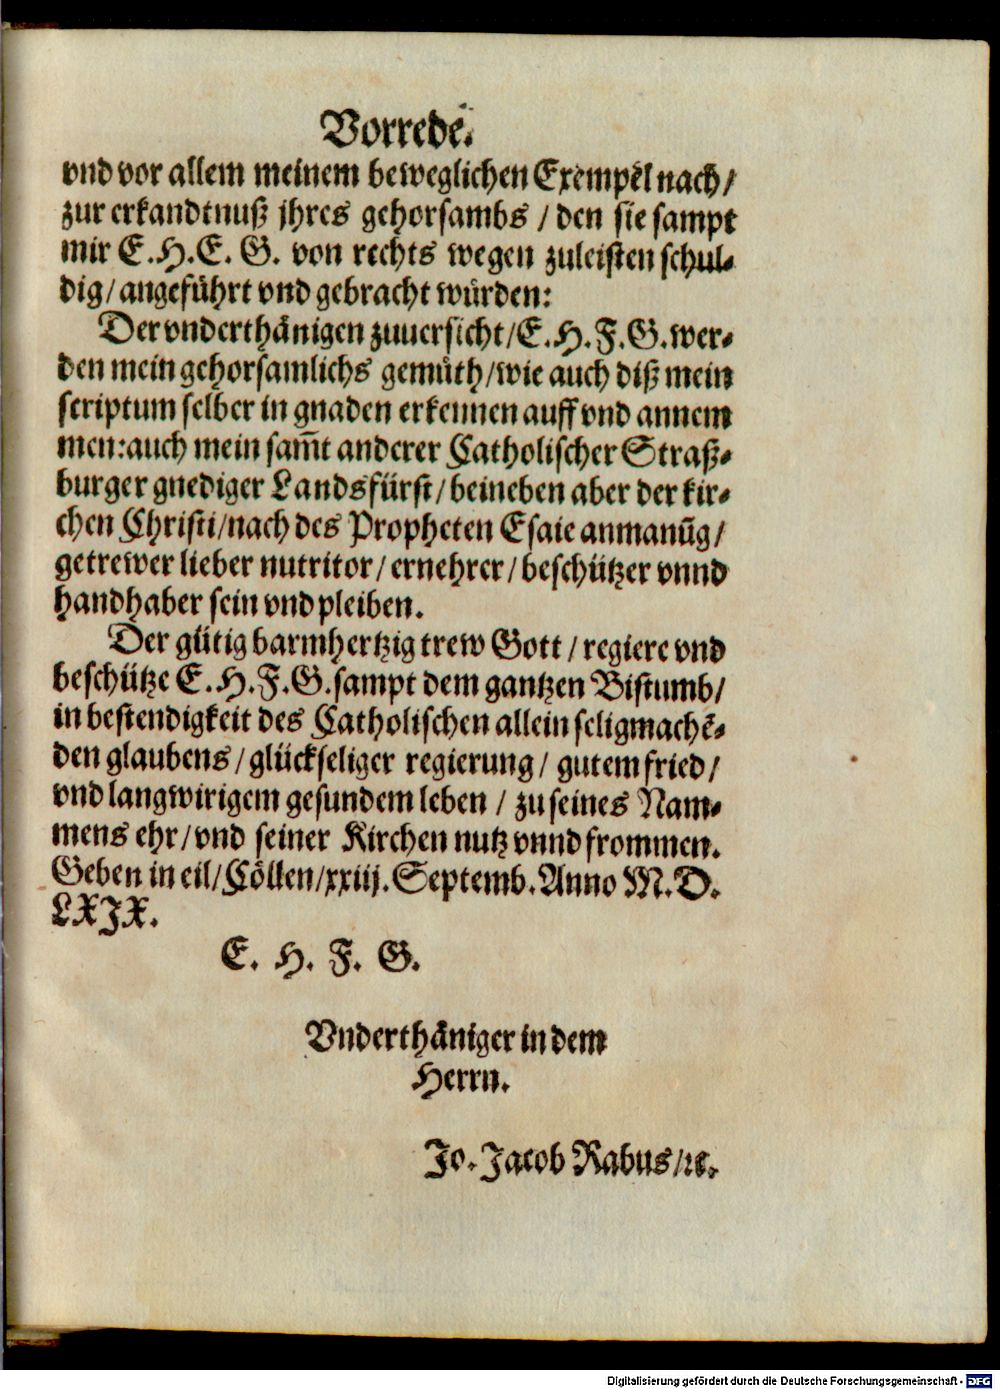 Vorrede.
vnd vor allem meinem beweglichen Exempel nach/
zur erkandtnuß jhres gehorsambs / den sie sampt
mir E.H.E. G. von rechts wegen zuleisten schul⸗
dig/angeführt vnd gebracht würden:
Der vnderthänigen zuuersicht/E.H.F.G.wer⸗
den mein gehorsamlichs gemüth/wie auch diß mein
scriptum selber in gnaden erkennen auff vnd annem
men:auch mein sam̄t anderer Catholischer Straß⸗
burger gnediger Landsfürst/beineben aber der kir⸗
chen Christi/nach des Propheten Esaie anmanūg/
getrewer lieber nutritor/ernehrer/beschützer vnnd
handhaber sein vnd pleiben.
Der gütig barmhertzig trew Gott/regiere vnd
beschütze E.H.F.G.sampt dem gantzen Bistumb/
in bestendigkeit des Catholischen allein seligmachē⸗
den glaubens/glückseliger regierung/ gutem fried/
vnd langwirigem gesundem leben / zu seines Nam⸗
mens ehr/vnd seiner Kirchen nutz vnnd frommen.
Geben in eil/Cöllen/xxiij.Septemb.Anno M.D.
LXJX.
E. H. F. G.
Vnderthäniger in dem
Herrn.
Jo. Jacob Rabus/ꝛc.
Digitalisierung gefördert durch die Deutsche Forschungsgemeinschaft - DFG